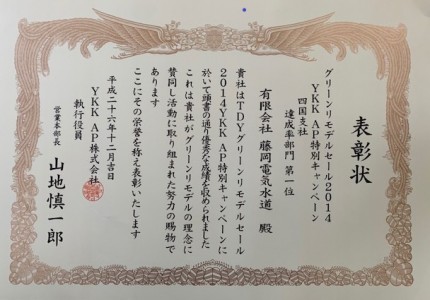 表彰状
グリーンリモデルセール2014
YKK AP特別キャンペーン
四国支社
達成率部門 第一位
有限会社 藤岡電気水道 殿
貴社はTDYグリーンリモデルセール
2014YKK AP特別キャンペーンに
於いて頭書の通り優秀な成績を収められました
これは貴社がグリーンリモデルの理念に
賛同し活動に取り組まれた努力の賜物で
あります
ここにその栄誉を称え表彰いたします
平成二十六年十二月吉日
YKK AP株式会社
執行役員
営業本部長
山地慎一郎